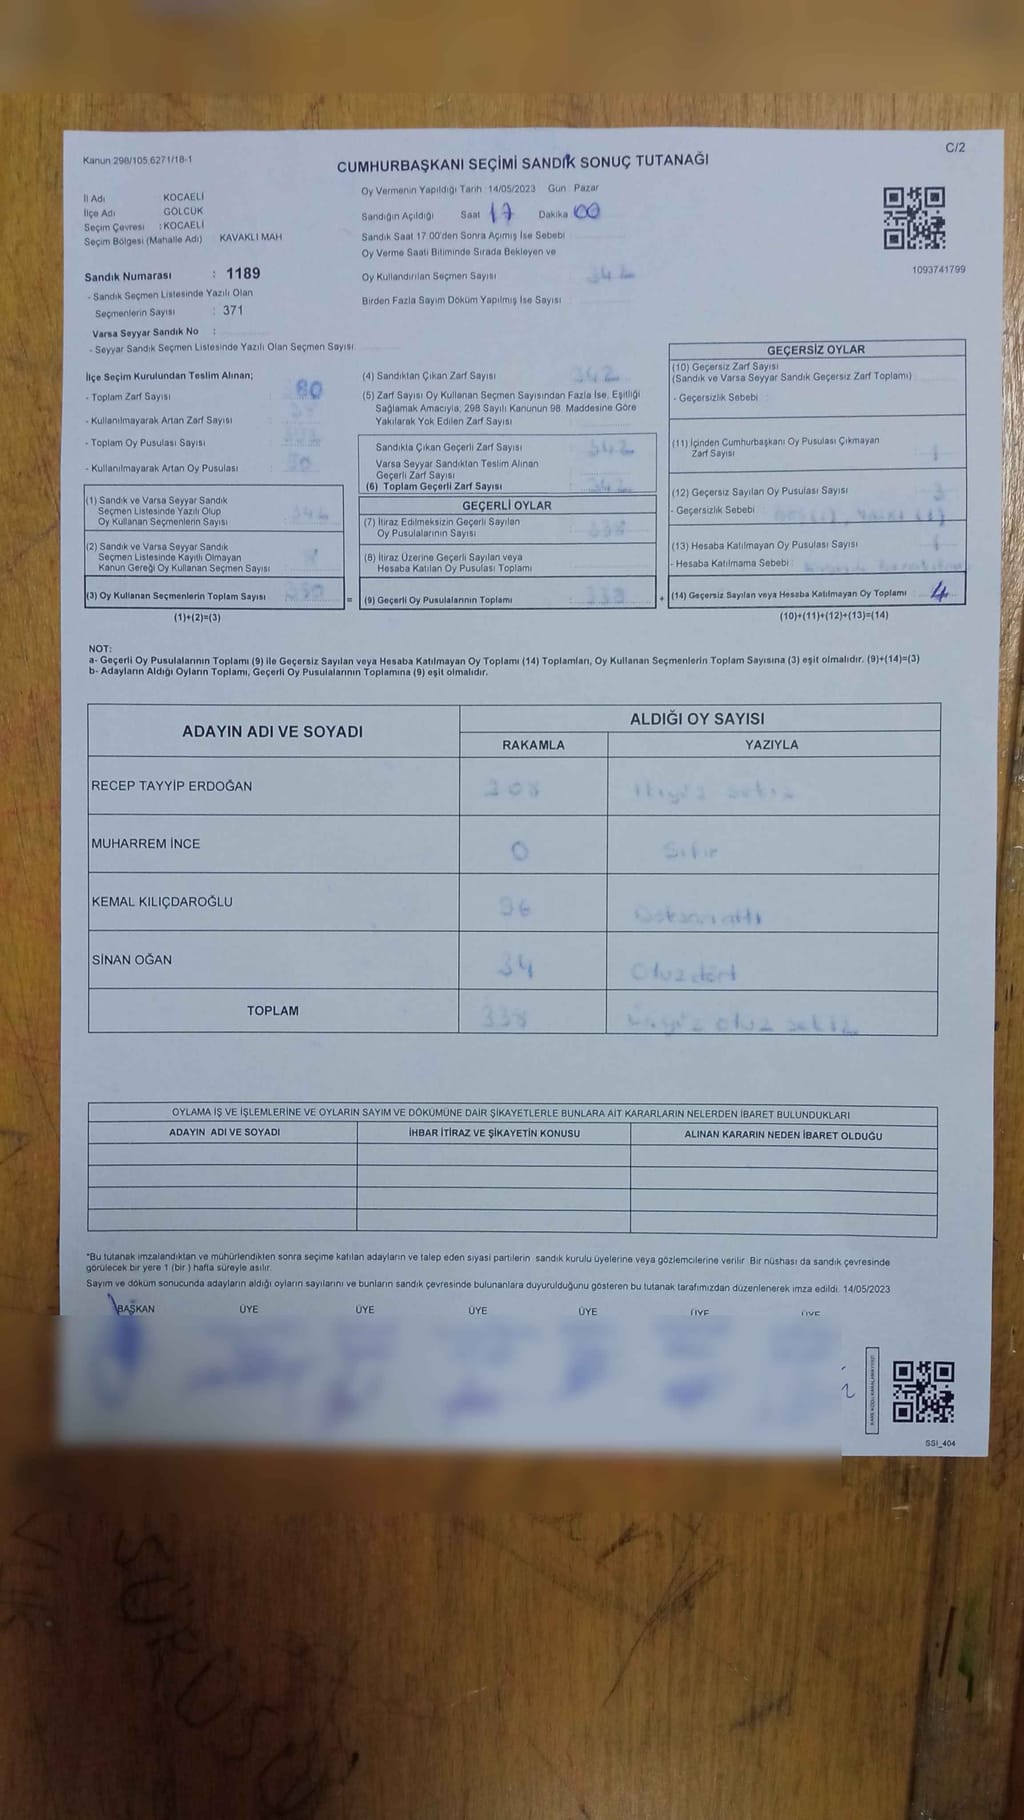 Kanun 298/105,6271/18-1
C/2
CUMHURBAŞKANI SEÇİMİ SANDIK SONUÇ TUTANAĞI
İl Adı KOCAELİ
İlçe Adı GÖLCÜK
Seçim Çevresi : KOCAELİ
Seçim Bölgesi (Mahalle Adı) KAVAKLI MAH
Oy Vermenin Yapıldığı Tarih 14/05/2023 Gün Pazar
Sandığın Açıldığı Saat 17 Dakika 00
Sandık Saat 17:00'den Sonra Açımış İse Sebebi
Oy Verme Saati Bitiminde Sırada Bekleyen ve
Oy Kullandırılan Seçmen Sayısı 342
Birden Fazla Sayım Döküm Yapılmış İse Sayısı
1093741799
Sandık Numarası : 1189
- Sandık Seçmen Listesinde Yazılı Olan
Seçmenlerin Sayısı : 371
Varsa Seyyar Sandık No :
- Seyyar Sandık Seçmen Listesinde Yazılı Olan Seçmen Sayısı
İlçe Seçim Kurulundan Teslim Alınan;
- Toplam Zarf Sayısı 80
- Kullanılmayarak Artan Zarf Sayısı
- Toplam Oy Pusulası Sayısı
- Kullanılmayarak Artan Oy Pusulası
(1) Sandık ve Varsa Seyyar Sandık
Seçmen Listesinde Yazılı Olup
Oy Kullanan Seçmenlerin Sayısı
(2) Sandık ve Varsa Seyyar Sandık
Seçmen Listesinde Kayıtlı Olmayan
Kanun Gereği Oy Kullanan Seçmen Sayısı
(3) Oy Kullanan Seçmenlerin Toplam Sayısı
(1)+(2)=(3)
(4) Sandıktan Çıkan Zarf Sayısı 342
(5) Zarf Sayısı Oy Kullanan Seçmen Sayısından Fazla İse, Eşitliği
Sağlamak Amacıyla, 298 Sayılı Kanunun 98. Maddesine Göre
Yakılarak Yok Edilen Zarf Sayısı
Sandıkta Çıkan Geçerli Zarf Sayısı 342
Varsa Seyyar Sandıktan Teslim Alınan
Geçerli Zarf Sayısı
(6) Toplam Geçerli Zarf Sayısı 342
GEÇERLİ OYLAR
(7) İtiraz Edilmeksizin Geçerli Sayılan
Oy Pusulalarının Sayısı 338
(8) İtiraz Üzerine Geçerli Sayılan veya
Hesaba Katılan Oy Pusulası Toplamı
= (9) Geçerli Oy Pusulalarının Toplamı 338
GEÇERSİZ OYLAR
(10) Geçersiz Zarf Sayısı
(Sandık ve Varsa Seyyar Sandık Geçersiz Zarf Toplamı)
- Geçersizlik Sebebi
(11) İçinden Cumhurbaşkanı Oy Pusulası Çıkmayan
Zarf Sayısı
(12) Geçersiz Sayılan Oy Pusulası Sayısı 3
- Geçersizlik Sebebi
(13) Hesaba Katılmayan Oy Pusulası Sayısı
- Hesaba Katılmama Sebebi
+ (14) Geçersiz Sayılan veya Hesaba Katılmayan Oy Toplamı 4
(10)+(11)+(12)+(13)=(14)
NOT:
a- Geçerli Oy Pusulalarının Toplamı (9) ile Geçersiz Sayılan veya Hesaba Katılmayan Oy Toplamı (14) Toplamları, Oy Kullanan Seçmenlerin Toplam Sayısına (3) eşit olmalıdır. (9)+(14)=(3)
b- Adayların Aldığı Oyların Toplamı, Geçerli Oy Pusulalarının Toplamına (9) eşit olmalıdır.
ADAYIN ADI VE SOYADI
ALDIĞI OY SAYISI
RAKAMLA YAZIYLA
RECEP TAYYİP ERDOĞAN 208 İkiyüz sekiz
MUHARREM İNCE 0 Sıfır
KEMAL KILIÇDAROĞLU 96 Doksanaltı
SİNAN OĞAN 34 Otuzdört
TOPLAM 338 Üçyüz otuz sekiz
OYLAMA İŞ VE İŞLEMLERİNE VE OYLARIN SAYIM VE DÖKÜMÜNE DAİR ŞİKAYETLERLE BUNLARA AİT KARARLARIN NELERDEN İBARET BULUNDUKLARI
ADAYIN ADI VE SOYADI İHBAR İTİRAZ VE ŞİKAYETİN KONUSU ALINAN KARARIN NEDEN İBARET OLDUĞU
*Bu tutanak imzalandıktan ve mühürlendikten sonra seçime katılan adayların ve talep eden siyasi partilerin sandık kurulu üyelerine veya gözlemcilerine verilir. Bir nüshası da sandık çevresinde
görülecek bir yere 1 (bir ) hafta süreyle asılır.
Sayım ve döküm sonucunda adayların aldığı oyların sayılarını ve bunların sandık çevresinde bulunanlara duyurulduğunu gösteren bu tutanak tarafımızdan düzenlenerek imza edildi. 14/05/2023
BAŞKAN ÜYE ÜYE ÜYE ÜYE ÜYE ÜYE
SSI_404